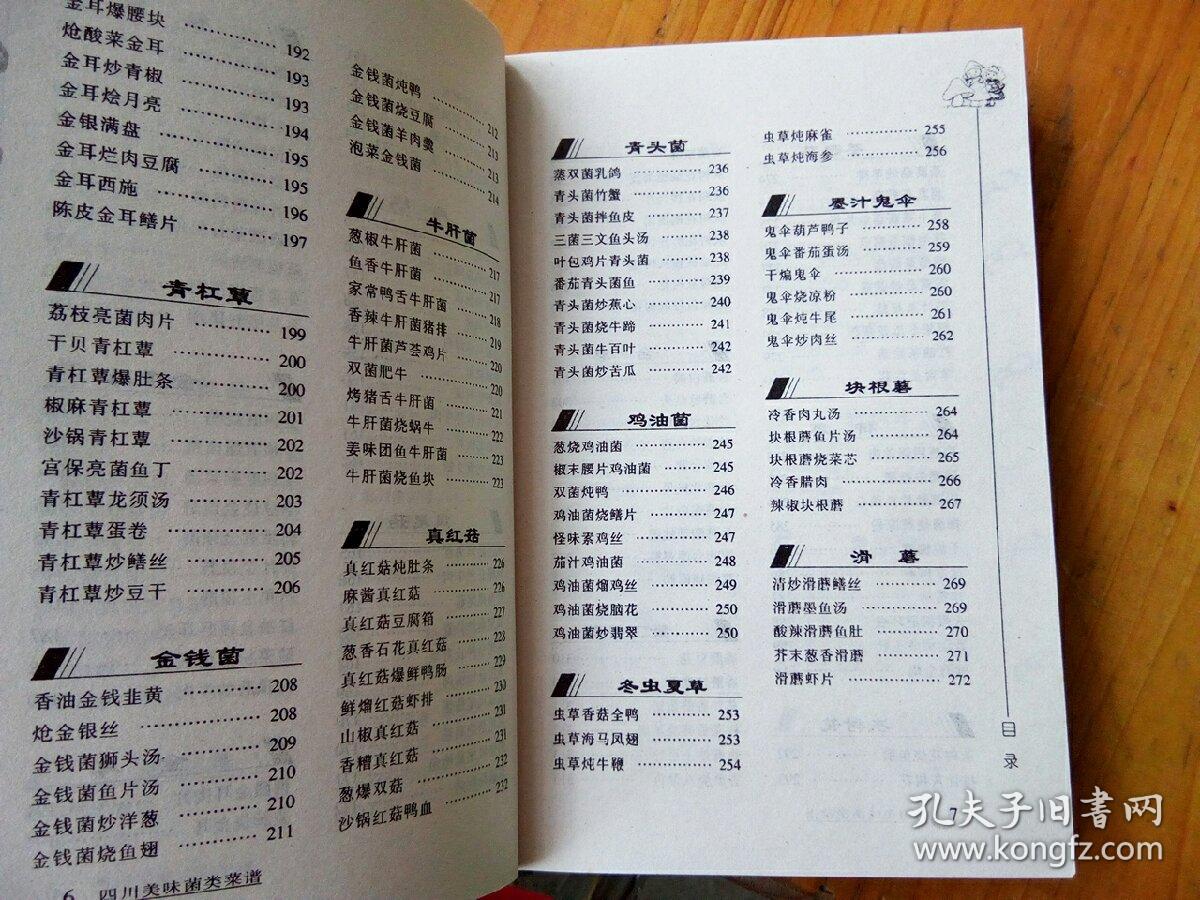 金耳爆腰块 192
炝酸菜金耳 193
金耳炒青椒 193
金耳烩月亮 194
金银满盘 195
金耳烂肉豆腐 195
金耳西施 196
陈皮金耳鳝片 197
青杠蕈
荔枝亮菌肉片 199
干贝青杠蕈 200
青杠蕈爆肚条 200
椒麻青杠蕈 201
沙锅青杠蕈 202
宫保亮菌鱼丁 202
青杠蕈龙须汤 203
青杠蕈蛋卷 204
青杠蕈炒鳝丝 205
青杠蕈炒豆干 206
金钱菌
香油金钱韭黄 208
炝金银丝 208
金钱菌狮头汤 209
金钱菌鱼片汤 210
金钱菌炒洋葱 210
金钱菌烧鱼翅 211
6 四川美味菌类菜谱
金钱菌炖鸭 212
金钱菌烧豆腐 213
金钱菌羊肉羹 213
泡菜金钱菌 214
牛肝菌
葱椒牛肝菌 217
鱼香牛肝菌 217
家常鸭舌牛肝菌 218
香辣牛肝菌猪排 219
牛肝菌芦荟鸡片 220
双菌肥牛 220
烤猪舌牛肝菌 221
牛肝菌烧蜗牛 222
姜味团鱼牛肝菌 223
牛肝菌烧鱼块 223
真红菇
真红菇炖肚条 226
麻酱真红菇 226
真红菇豆腐箱 227
葱香石花真红菇 228
真红菇爆鲜鸭肠 229
鲜熘红菇虾排 230
山椒真红菇 231
香糟真红菇 231
葱爆双菇 232
沙锅红菇鸭血 232
青头菌
蒸双菌乳鸽 236
青头菌竹蟹 236
青头菌拌鱼皮 237
三菌三文鱼头汤 238
叶包鸡片青头菌 238
番茄青头菌鱼 239
青头菌炒蕉心 240
青头菌烧牛蹄 241
青头菌牛百叶 242
青头菌炒苦瓜 242
鸡油菌
葱烧鸡油菌 245
椒末腰片鸡油菌 245
双菌炖鸭 246
鸡油菌烧鳝片 247
怪味素鸡丝 247
茄汁鸡油菌 248
鸡油菌熘鸡丝 249
鸡油菌烧脑花 250
鸡油菌炒翡翠 250
冬虫夏草
虫草香菇全鸭 253
虫草海马凤翅 253
虫草炖牛鞭 254
虫草炖麻雀 255
虫草炖海参 256
墨汁鬼伞
鬼伞葫芦鸭子 258
鬼伞番茄蛋汤 259
干煸鬼伞 260
鬼伞烧凉粉 260
鬼伞炖牛尾 261
鬼伞炒肉丝 262
块根蘑
冷香肉丸汤 264
块根蘑鱼片汤 264
块根蘑烧菜芯 265
冷香腊肉 266
辣椒块根蘑 267
滑蘑
清炒滑蘑鳝丝 269
滑蘑墨鱼汤 269
酸辣滑蘑鱼肚 270
芥末葱香滑蘑 271
滑蘑虾片 272
目录
7
孔夫子旧书网
www.kongfz.com